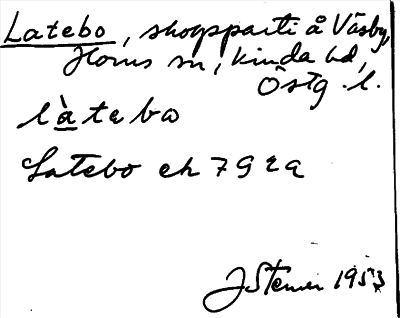 Latebo, skogsparti å Väsby,
Horns sn, Kinda hd,
Östg. l.
làtebo
Latebo ek 79 2a
JStener 1953